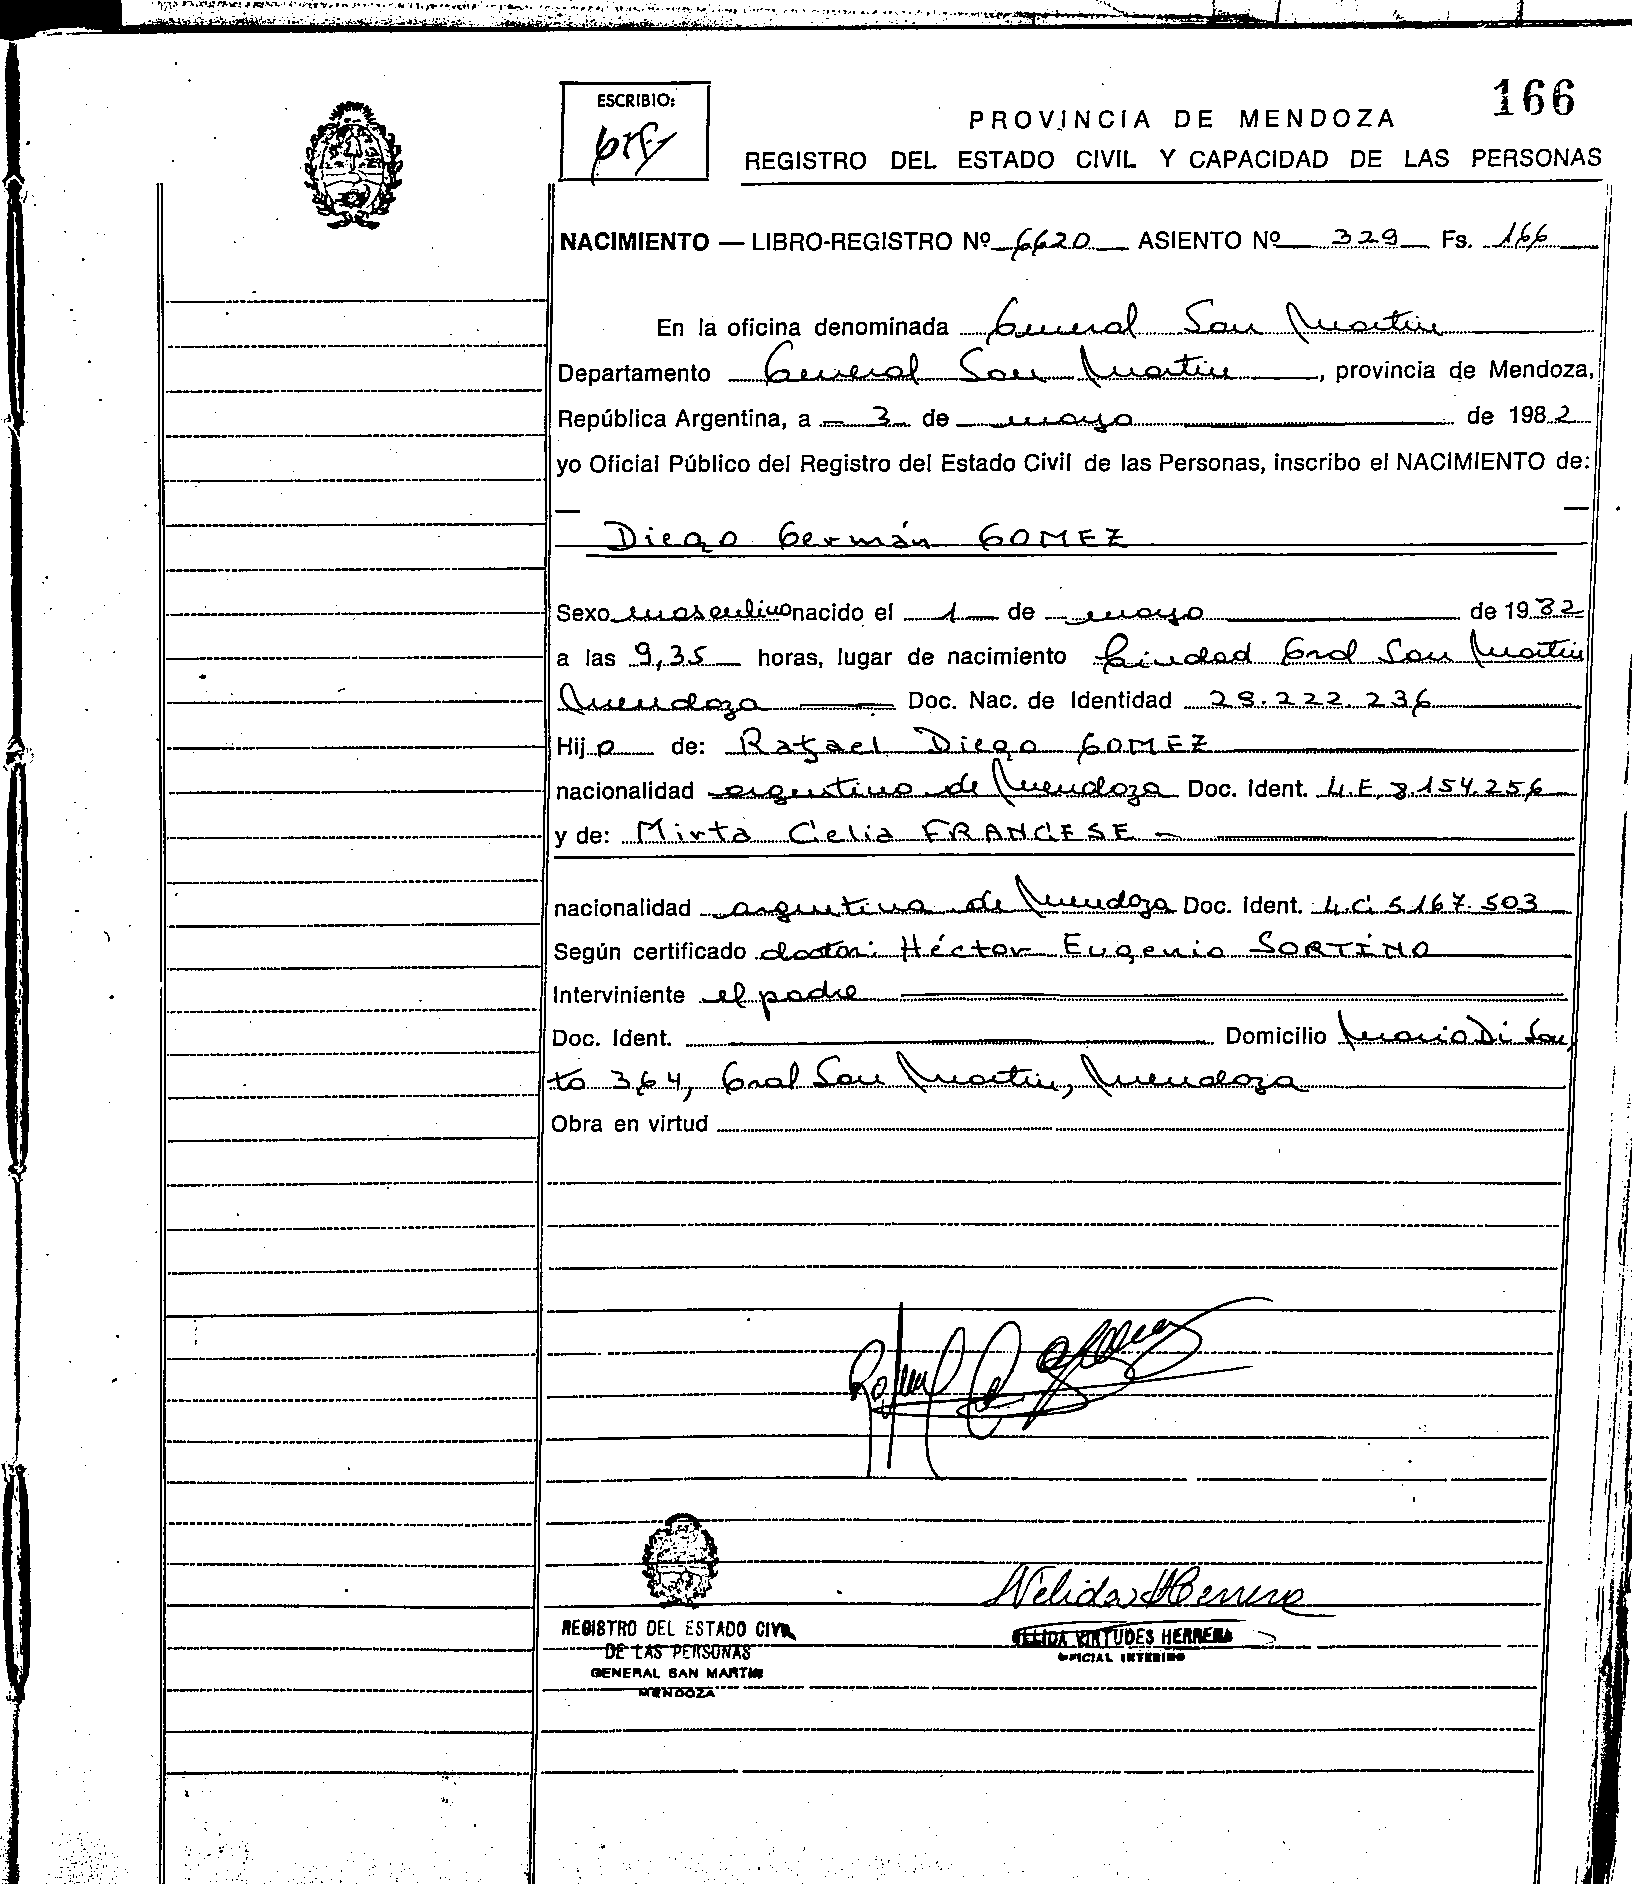 166
ESCRIBIO:
PROVINCIA DE MENDOZA
REGISTRO DEL ESTADO CIVIL Y CAPACIDAD DE LAS PERSONAS
NACIMIENTO — LIBRO-REGISTRO Nº 6620 ASIENTO Nº 329 Fs. 166
En la oficina denominada General San Martin
Departamento General San Martin, provincia de Mendoza,
República Argentina, a - 3 de mayo de 1982
yo Oficial Público del Registro del Estado Civil de las Personas, inscribo el NACIMIENTO de:
Diego Germán GOMEZ
Sexo masculino nacido el 1 de mayo de 1982
a las 9,35 horas, lugar de nacimiento Ciudad Gral San Martin
Mendoza Doc. Nac. de Identidad 29.222.236
Hijo de: Rafael Diego GOMEZ
nacionalidad argentino de Mendoza Doc. Ident. L.E. 8.154.256
y de: Mirta Celia FRANCESE -
nacionalidad argentina de Mendoza Doc. Ident. L.C. 5.167.503
Según certificado doctor: Héctor Eugenio SORTINO
Interviniente el padre
Doc. Ident. Domicilio Mario Di San
to 364, Gral San Martin, Mendoza
Obra en virtud
Nelida Herrera
REGISTRO DEL ESTADO CIVIL
DE LAS PERSONAS
GENERAL SAN MARTIN
MENDOZA
NELIDA VIRTUDES HERRERA
OFICIAL INTERINO